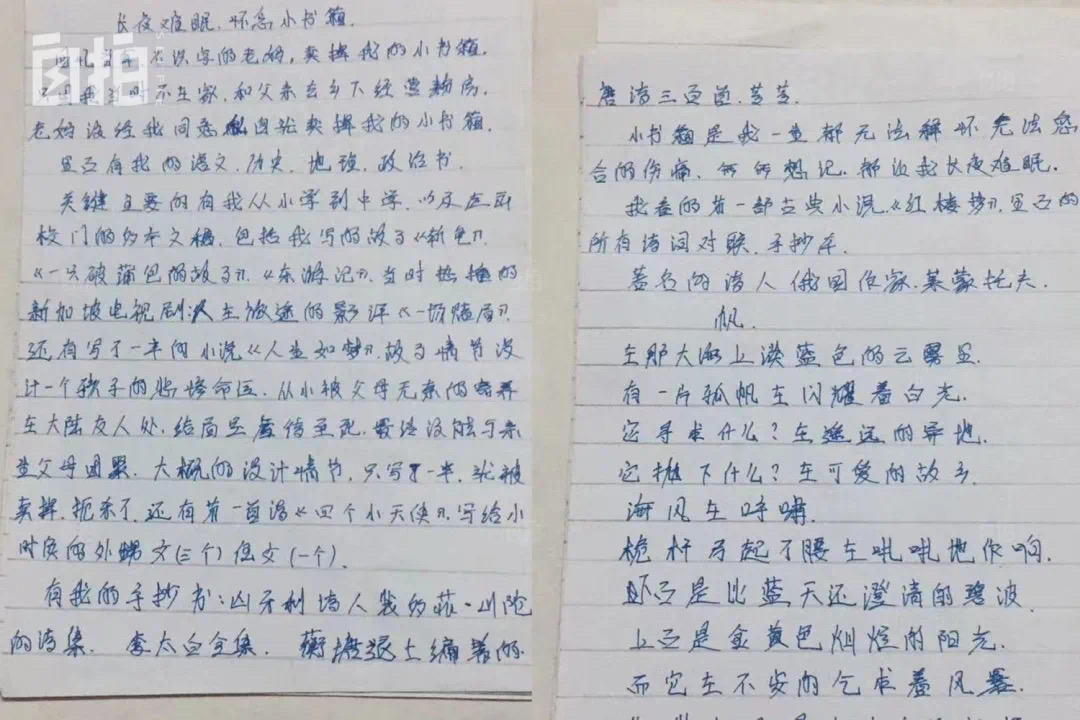 长夜难眠.怀念小书箱.
不识字的老妈,卖掉我的小书箱.
不在家,和父亲去乡下经营粉房.
老妈没经我同意私自卖掉我的小书箱.
里面有我的语文、历史、地理、政治书.
关键主要的有我从小学到中学,以及走出
校门的多本文稿,包括我写的故事《新包》,
《一只破蒲包的故事》,《东游记》,当时热播的
新加坡电视剧:人在旅途的影评《一场赌局》,
还有写了一半的小说《人生如梦》,故事情节设
计一个孩子的悲惨命运.从小被父母无奈的寄养
在大陆友人处,结局是屡信至死,最终没能与亲
生父母团聚.大概的设计情节,只写了一半,就被
卖掉.扼杀了.还有着一首诗《四个小天使》,写给小
时候的外甥女(三个)侄女(一个).
有我的手抄书:匈牙利诗人裴多菲·山陀
的诗集. 李太白全集. 蘅塘退士编著的
唐诗三百首.等等.
小书箱是我一生都无法释怀无法愈
合的伤痛,每每想记,都让我长夜难眠.
我看的第一部古典小说,《红楼梦》,里面的
所有诗词对联,手抄本.
著名的诗人俄国作家.莱蒙托夫.
帆.
在那大海上淡蓝色的云雾里.
有一片孤帆在闪耀着白光.
它寻求什么?在遥远的异地.
它抛下什么?在可爱的故乡.
海风在呼啸.
桅杆弓起了腰在吱吱地作响.
下面是比蓝天还澄清的碧波.
上面是金黄色灿烂的阳光.
而它在不安的乞求着风暴.